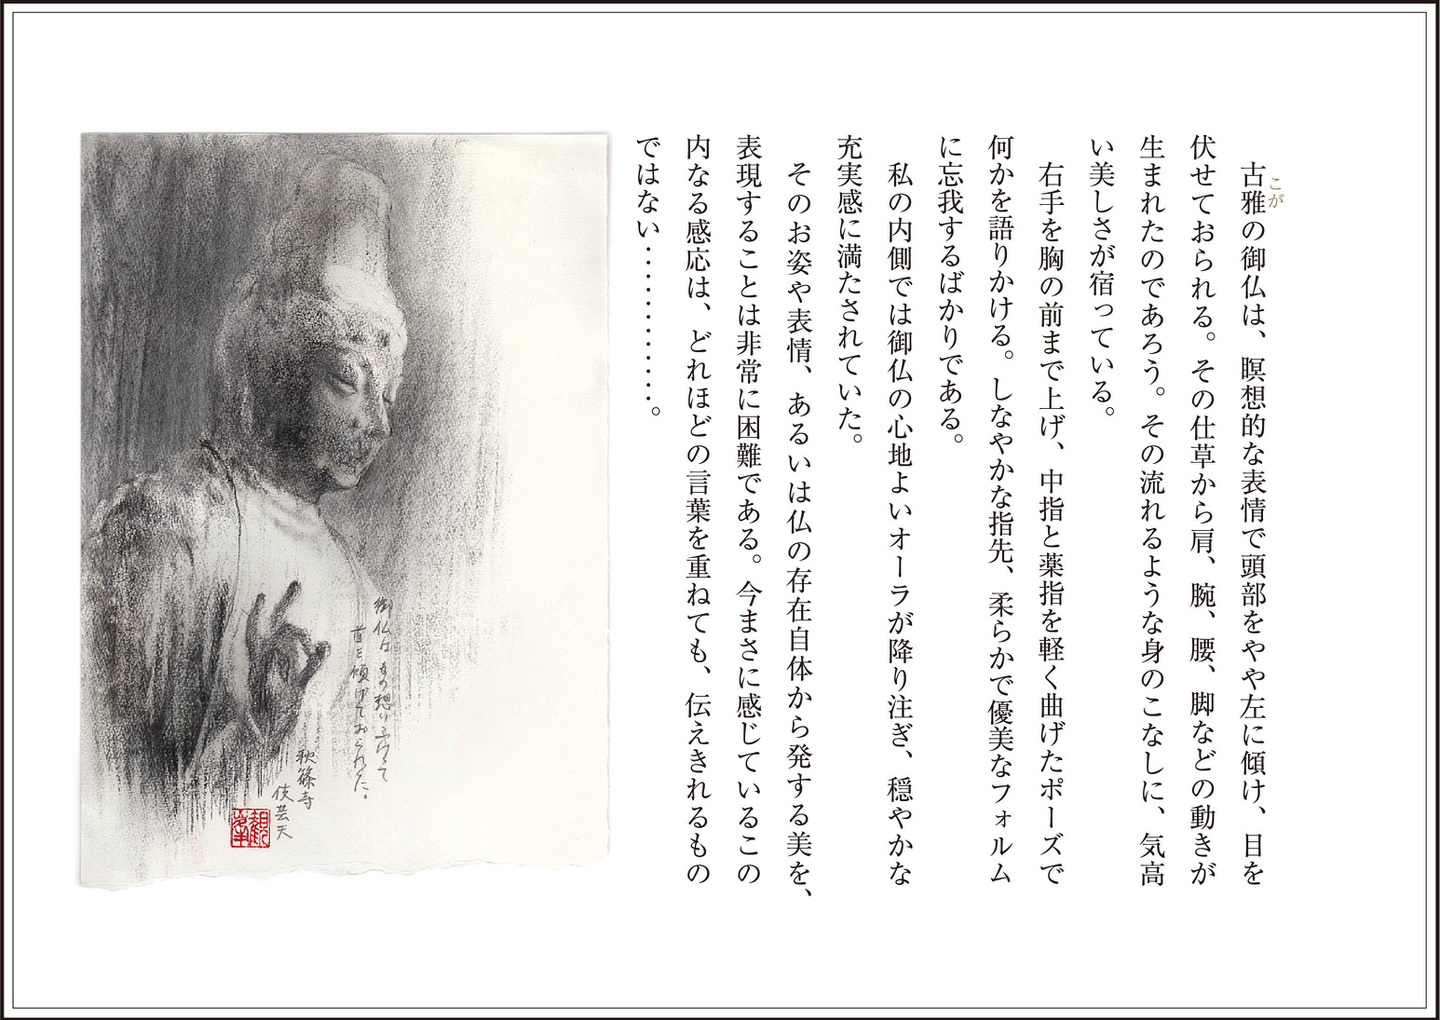 古雅の御仏は、瞑想的な表情で頭部をやや左に傾け、目を
こが
伏せておられる。その仕草から肩、腕、腰、脚などの動きが
生まれたのであろう。その流れるような身のこなしに、気高
い美しさが宿っている。
右手を胸の前まで上げ、中指と薬指を軽く曲げたポーズで
何かを語りかける。しなやかな指先、柔らかで優美なフォルム
に忘我するばかりである。
私の内側では御仏の心地よいオーラが降り注ぎ、穏やかな
充実感に満たされていた。
そのお姿や表情、あるいは仏の存在自体から発する美を、
表現することは非常に困難である。今まさに感じているこの
内なる感応は、どれほどの言葉を重ねても、伝えきれるもの
ではない…………。
御仏は もの想いにふけって
首を傾けておられた。
秋篠寺
伎芸天